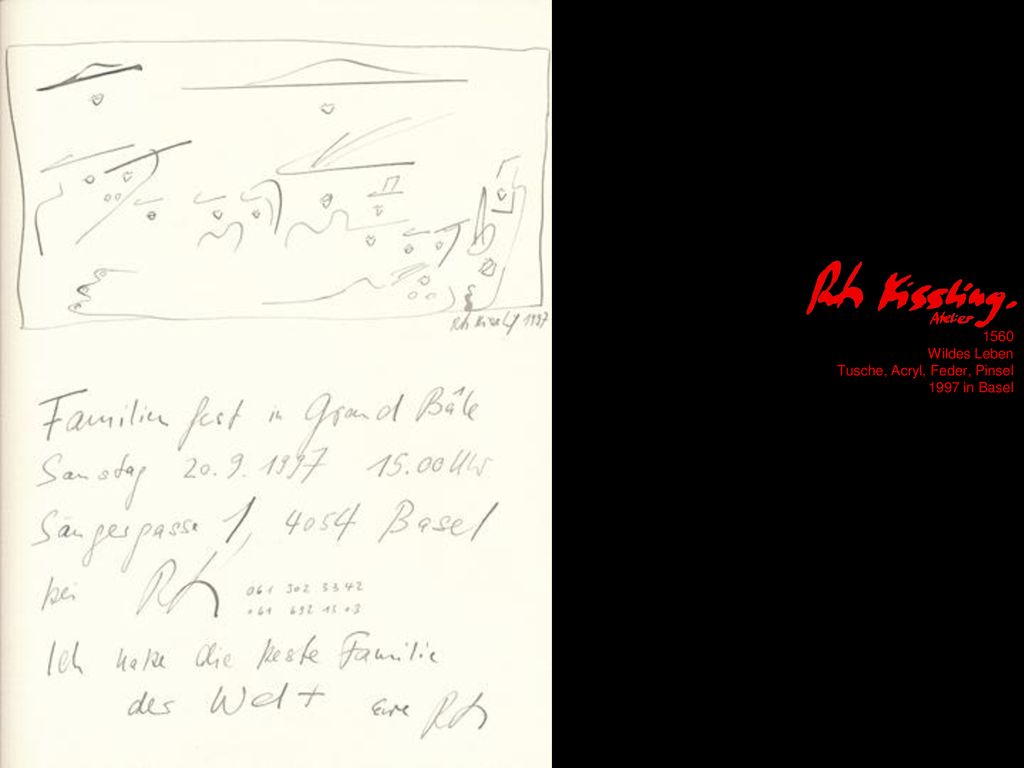 Rth Kissling 1997
Familienfest in Grand Bâle
Samstag 20.9.1997 15.00 Uhr
Sängergasse 1, 4054 Basel
bei Rth 061 302 3342
061 692 15 03
Ich habe die beste Familie
der Welt eure Rth
Rth Kissling.
Atelier
1560
Wildes Leben
Tusche, Acryl, Feder, Pinsel
1997 in Basel